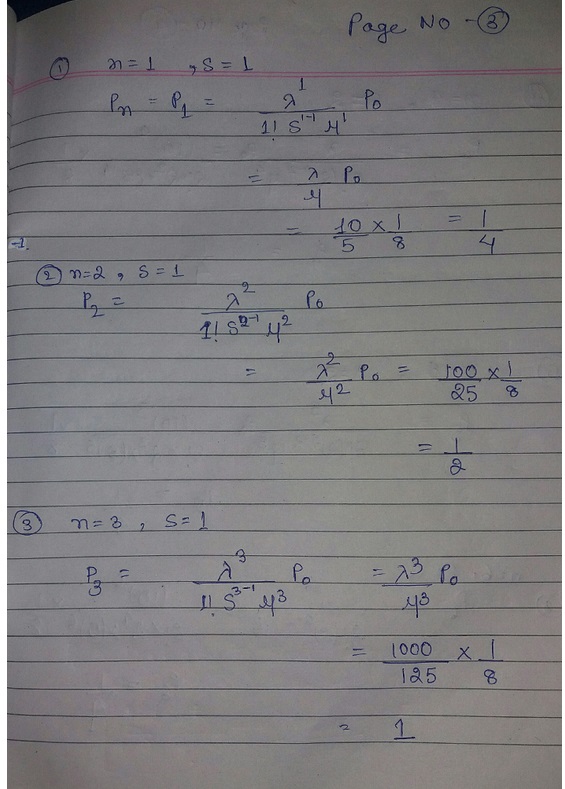 Page No - ③
① n=1 , S=1
Pₙ = P₁ = λ¹ / 1! S¹⁻¹ μ¹ P₀
= λ/μ P₀
= 10/5 × 1/8 = 1/4
-1.
② n=2 , S=1
P₂ = λ² / 1! S²⁻¹ μ² P₀
= λ²/μ² P₀ = 100/25 × 1/8
= 1/2
③ n=3 , S=1
P₃ = λ³ / 1! S³⁻¹ μ³ P₀ = λ³/μ³ P₀
= 1000/125 × 1/8
= 1